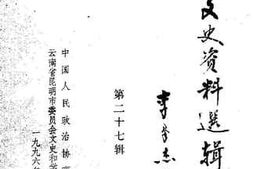 文史资料选辑
李学杰
第二十七辑
中国人民政治协商
云南省昆明市委员会文史和学
一九九六年